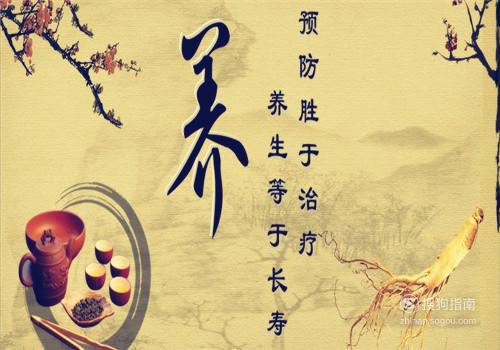 养
预防胜于治疗
养生等于长寿
搜狗指南
zhinan.sogou.com